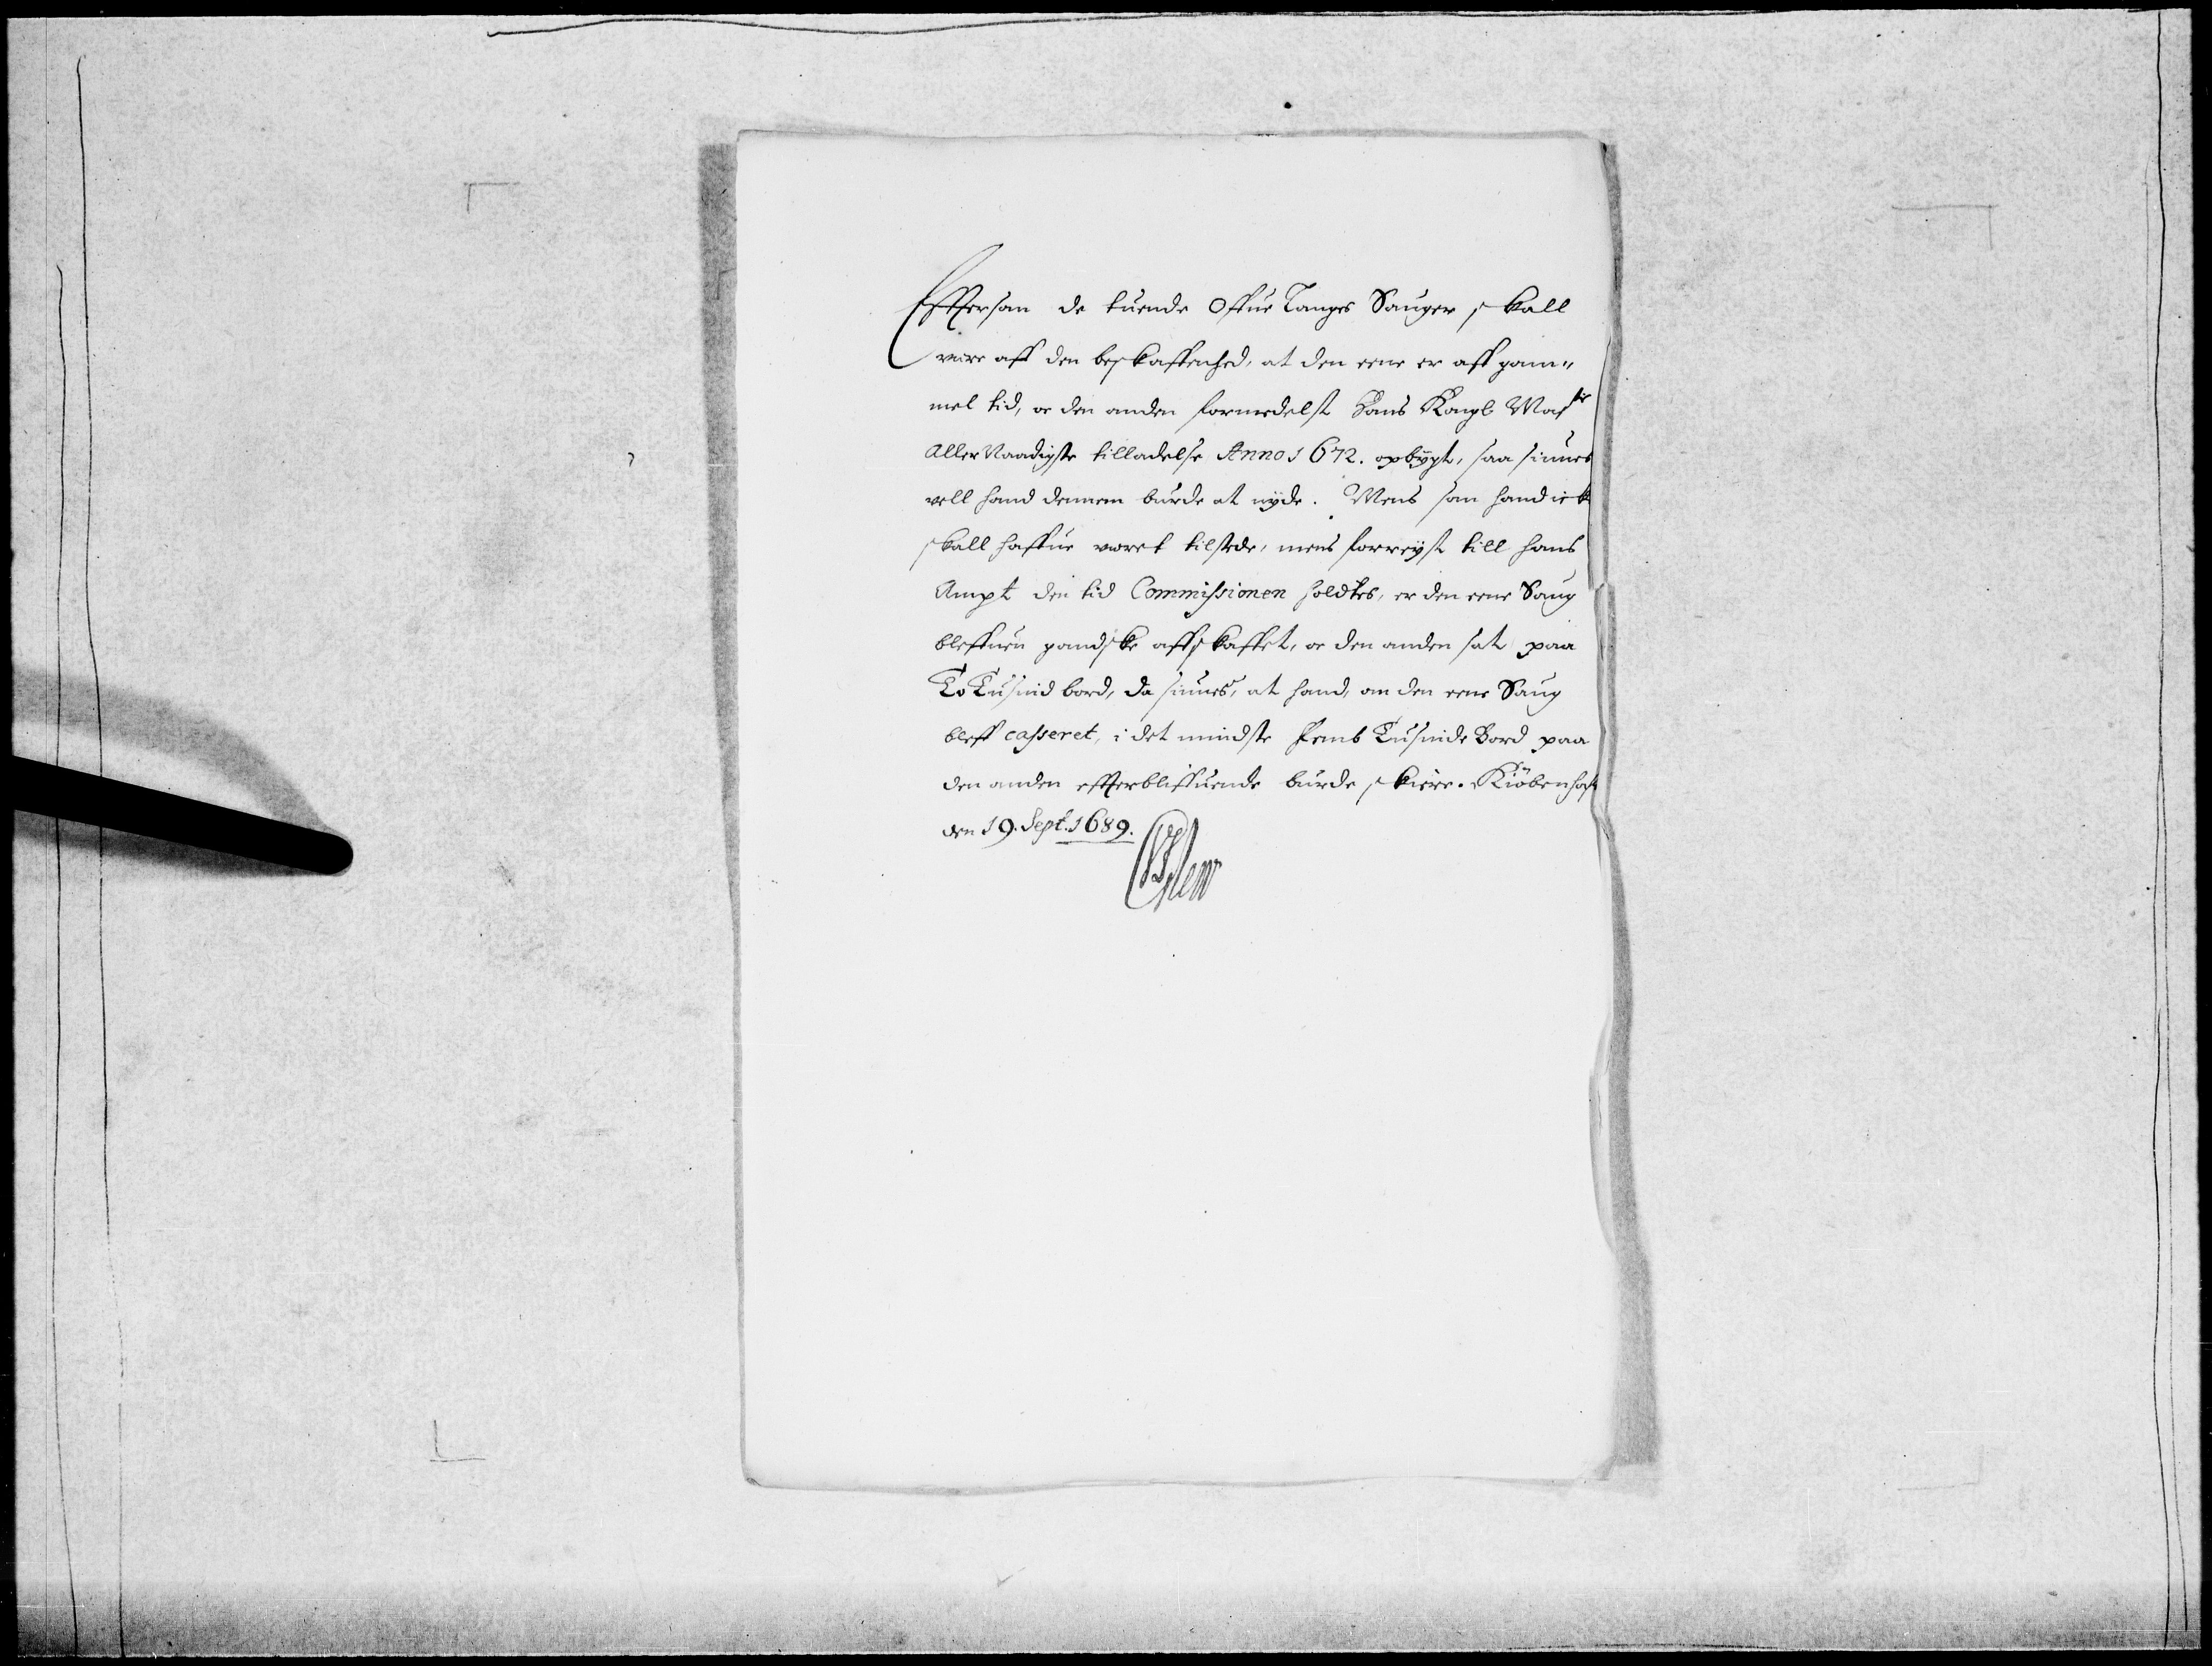 Effter som de tuende Offue Langes Sauger skall
være aff den beskaffenhed, at den eene er aff gam„
mel tid, oc den anden formedelst Hans Kongl Mayts
AllerNaadigste tilladelse Anno 1672. opbygt, saa siunes
vell hand dennem burde at nyde. Mens som hand ick
skall haffue veret tilstede, mens forreyst till hans
Ampt den tid Commissionen holdtes, er den eene Saug
bleffuen gandske affskaffet, oc den anden sat paa
To Tusind bord, da siunes, at hand, om den eene Saug
bleff casseret, i det mindste Femb Tusinde Bord paa
den anden effterbliffuende burde skiere. Kiöbenhaff
den 19. Sept. 1689.